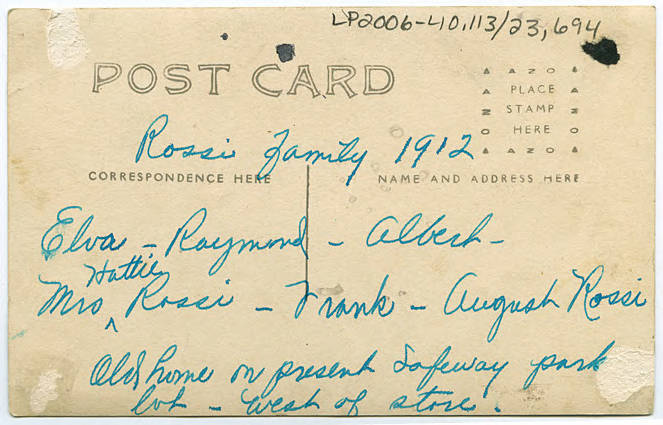 LP2006-40,113/23,694
POST CARD
A A Z O A
PLACE
STAMP
HERE
A A Z O A
Rossi Family 1912
CORRESPONDENCE HERE
NAME AND ADDRESS HERE
Elva - Raymond - Albert -
Hattie
Mrs ^ Rossi - Frank - August Rossi
Old home on present Safeway park
lot - west of store.